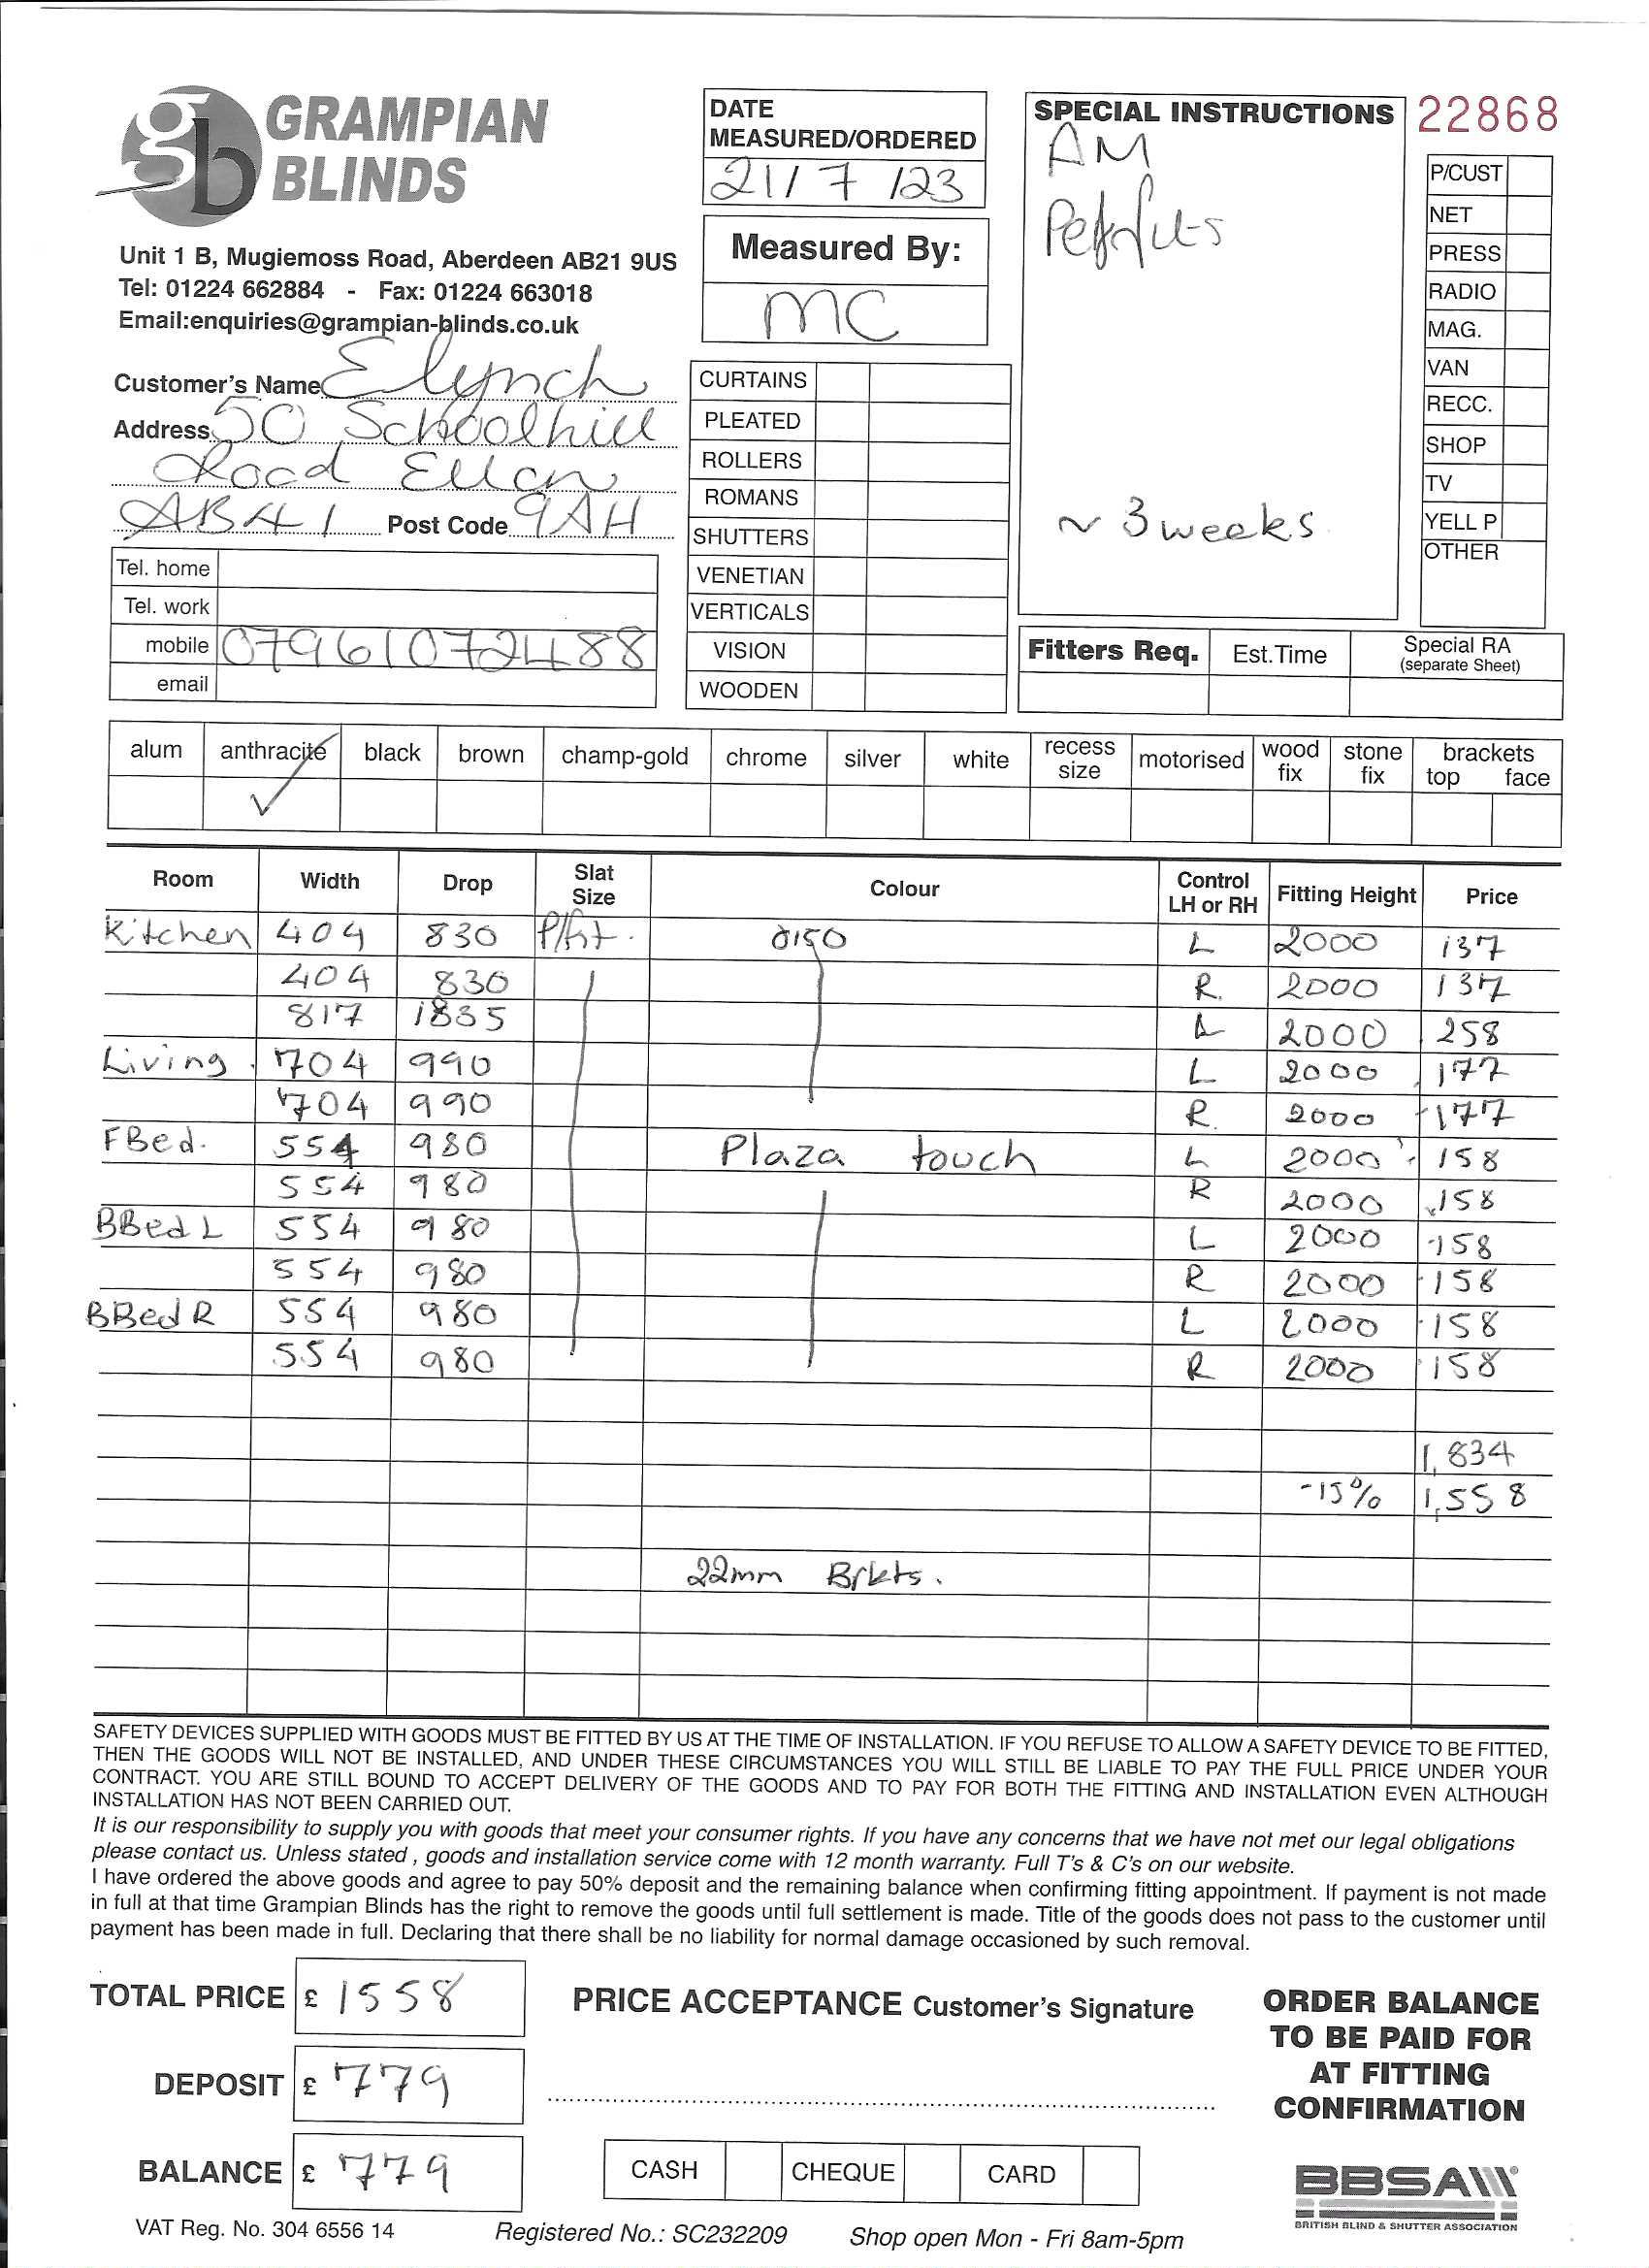 GRAMPIAN
BLINDS
Unit 1 B, Mugiemoss Road, Aberdeen AB21 9US
Tel: 01224 662884 - Fax: 01224 663018
Email:enquiries@grampian-blinds.co.uk
DATE
MEASURED/ORDERED
21/7/23
Measured By:
MC
SPECIAL INSTRUCTIONS
AM
~ 3 weeks
22868
P/CUST
NET
PRESS
RADIO
MAG.
VAN
RECC.
SHOP
TV
YELL P
OTHER
Customer's Name E Lynch
Address 50 Schoolhill
Road Ellon
AB41 Post Code 9AH
Tel. home
Tel. work
mobile 07961072488
email
CURTAINS
PLEATED
ROLLERS
ROMANS
SHUTTERS
VENETIAN
VERTICALS
VISION
WOODEN
Fitters Req. Est.Time Special RA
(separate Sheet)
alum anthracite black brown champ-gold chrome silver white recess size motorised wood fix stone fix brackets top face
✓
Room Width Drop Slat Size Colour Control LH or RH Fitting Height Price
Kitchen 404 830 P/fit. 0150 L 2000 137
404 830 R. 2000 137
817 1835 2000 258
Living 704 990 L 2000 177
704 990 R. 2000 177
FBed. 554 980 Plaza touch L 2000 158
554 980 R 2000 158
BBed L 554 980 L 2000 158
554 980 R 2000 158
BBed R 554 980 L 2000 158
554 980 R 2000 158
1,834
-15% 1,558
22mm Brkts.
SAFETY DEVICES SUPPLIED WITH GOODS MUST BE FITTED BY US AT THE TIME OF INSTALLATION. IF YOU REFUSE TO ALLOW A SAFETY DEVICE TO BE FITTED,
THEN THE GOODS WILL NOT BE INSTALLED, AND UNDER THESE CIRCUMSTANCES YOU WILL STILL BE LIABLE TO PAY THE FULL PRICE UNDER YOUR
CONTRACT. YOU ARE STILL BOUND TO ACCEPT DELIVERY OF THE GOODS AND TO PAY FOR BOTH THE FITTING AND INSTALLATION EVEN ALTHOUGH
INSTALLATION HAS NOT BEEN CARRIED OUT.
It is our responsibility to supply you with goods that meet your consumer rights. If you have any concerns that we have not met our legal obligations
please contact us. Unless stated , goods and installation service come with 12 month warranty. Full T's & C's on our website.
I have ordered the above goods and agree to pay 50% deposit and the remaining balance when confirming fitting appointment. If payment is not made
in full at that time Grampian Blinds has the right to remove the goods until full settlement is made. Title of the goods does not pass to the customer until
payment has been made in full. Declaring that there shall be no liability for normal damage occasioned by such removal.
TOTAL PRICE £ 1558
DEPOSIT £ 779
BALANCE £ 779
PRICE ACCEPTANCE Customer's Signature
CASH CHEQUE CARD
ORDER BALANCE
TO BE PAID FOR
AT FITTING
CONFIRMATION
BBSA
BRITISH BLIND & SHUTTER ASSOCIATION
VAT Reg. No. 304 6556 14 Registered No.: SC232209 Shop open Mon - Fri 8am-5pm